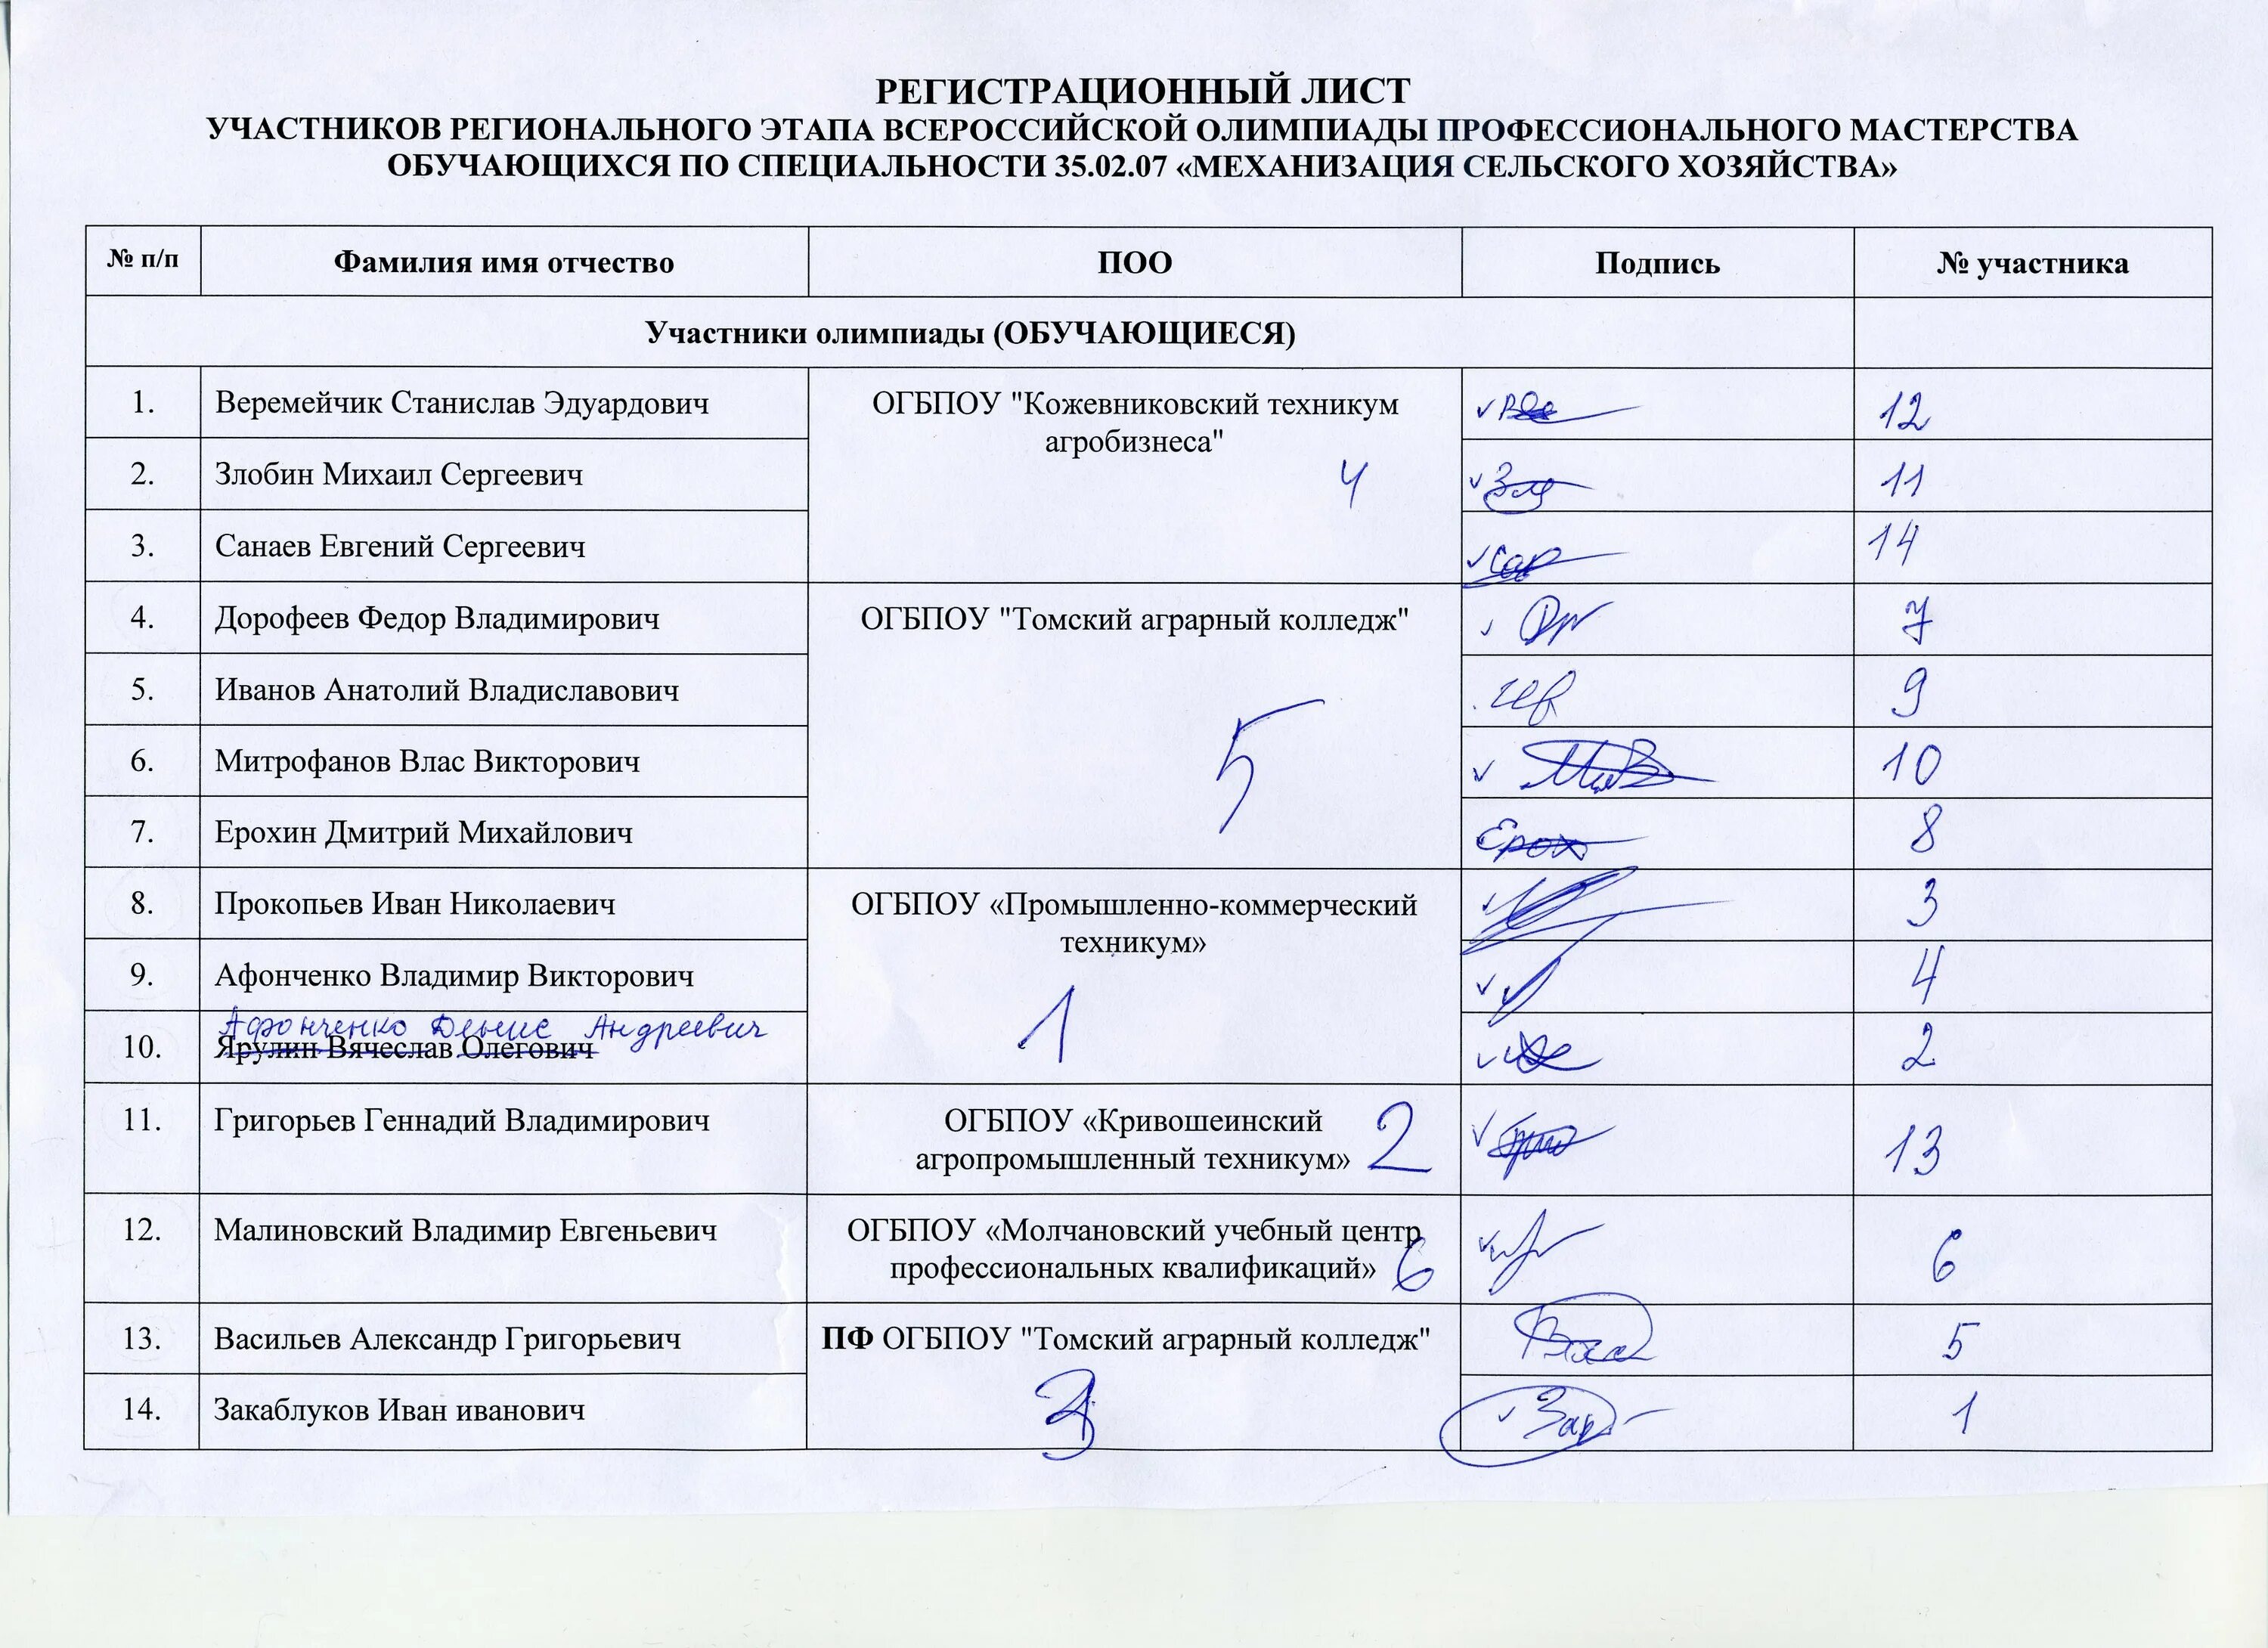 РЕГИСТРАЦИОННЫЙ ЛИСТ
УЧАСТНИКОВ РЕГИОНАЛЬНОГО ЭТАПА ВСЕРОССИЙСКОЙ ОЛИМПИАДЫ ПРОФЕССИОНАЛЬНОГО МАСТЕРСТВА
ОБУЧАЮЩИХСЯ ПО СПЕЦИАЛЬНОСТИ 35.02.07 «МЕХАНИЗАЦИЯ СЕЛЬСКОГО ХОЗЯЙСТВА»
№ п/п Фамилия имя отчество ПОО Подпись № участника
Участники олимпиады (ОБУЧАЮЩИЕСЯ)
1. Веремейчик Станислав Эдуардович ОГБПОУ "Кожевниковский техникум 12
агробизнеса"
2. Злобин Михаил Сергеевич 4 11
3. Санаев Евгений Сергеевич 14
4. Дорофеев Федор Владимирович ОГБПОУ "Томский аграрный колледж" 7
5. Иванов Анатолий Владиславович 9
6. Митрофанов Влас Викторович 5 10
7. Ерохин Дмитрий Михайлович Ерох 8
8. Прокопьев Иван Николаевич ОГБПОУ «Промышленно-коммерческий 3
техникум»
9. Афонченко Владимир Викторович 4
Афонченко Денис Андреевич 1
10. Ярулин Вячеслав Олегович 2
11. Григорьев Геннадий Владимирович ОГБПОУ «Кривошеинский 13
агропромышленный техникум» 2
12. Малиновский Владимир Евгеньевич ОГБПОУ «Молчановский учебный центр 6
профессиональных квалификаций» 6
13. Васильев Александр Григорьевич ПФ ОГБПОУ "Томский аграрный колледж" 5
14. Закаблуков Иван иванович 3 1